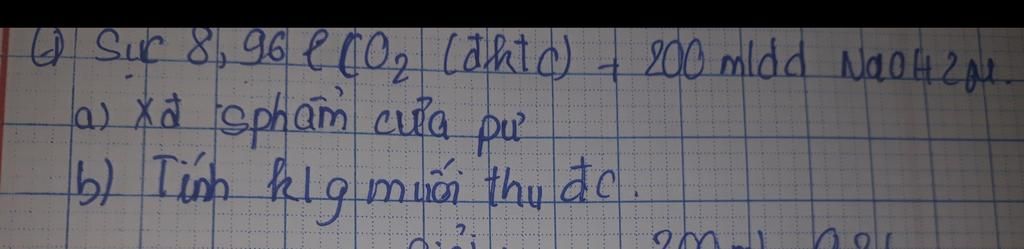 Sục 8,96 l CO2 (đktc) + 200 ml dd NaOH 2M.
a) Xđ sphẩm của pư
b) Tính klg muối thu đc.